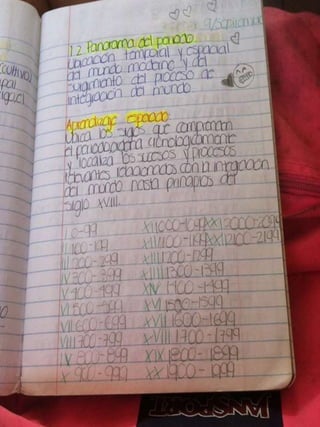 9/septiembre
1.2 Panorama del periodo
Ubicación temporal y espacial
del mundo moderno y del
surgimiento del proceso de
integración del mundo
Aprendizaje esperado
Ubica los siglos que comprenden
el periodo, ordena cronológicamente
y localiza los sucesos y procesos
relevantes relacionados con la integración
del mundo hasta principios del
siglo XVIII.
I 0-99 XI 1000-1099 XXI 2000-2099
II 100-199 XII 1100-1199 XXII 2100-2199
III 200-299 XIII 1200-1299
IV 300-399 XIV 1300-1399
V 400-499 XV 1400-1499
VI 500-599 XVI 1500-1599
VII 600-699 XVII 1600-1699
VIII 700-799 XVIII 1700-1799
IX 800-899 XIX 1800-1899
X 900-999 XX 1900-1999
JANSPORT